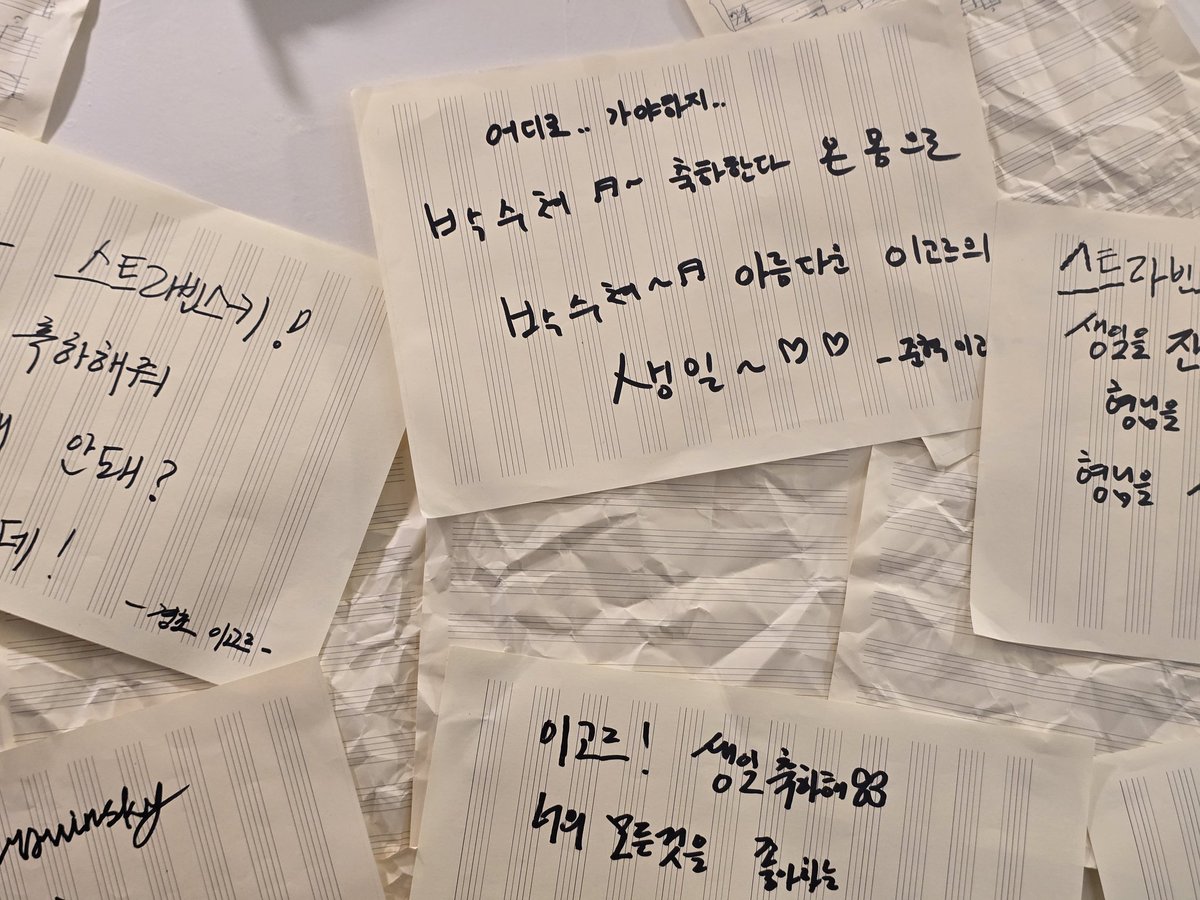 어디로.. 가야하지..
박수쳐 ♬~ 축하한다 온 몸으로
박수쳐~♬ 아름다운 이고르의
생일~♡♡ -준혁 이고
스트라빈스키!
축하해줘
안돼?
데!
-경초 이고르-
스트라빈
생일을 잔
형님을
형님을
이고르! 생일축하해 88
너의 모든것을 좋아하는